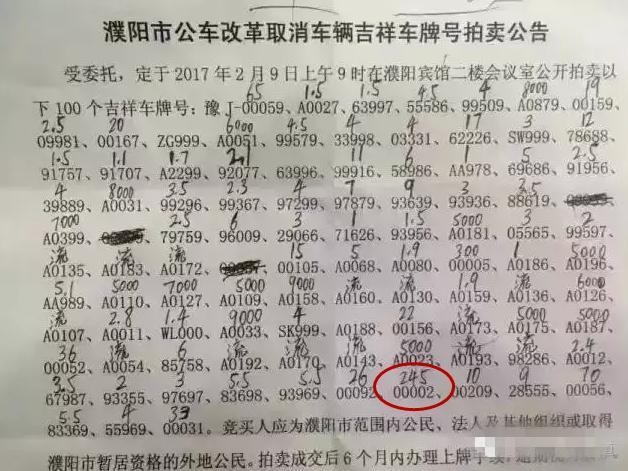 濮阳市公车改革取消车辆吉祥车牌号拍卖公告
受委托，定于 2017 年 2 月 9 日上午 9 时在濮阳宾馆二楼会议室公开拍卖以
65 1.5 1.5 4.5 4 8000 19
下 100 个吉祥车牌号：豫 J-00059、A0027、63997、55586、99509、A0879、00159、
2.5 20 6000 4.5 4 17 3 12
09981、00167、ZG999、A0051、99579、33998、03331、62226、SW999、78688、
1.5 1.1 1.7 2.1 11 6 1 5 2.5
91757、91707、A2299、92077、63996、99916、58986、AA978、69686、91956、
4 8000 3.5 2.3 4 7 9 3 3.5
39889、A0031、99296、99367、97299、97879、93639、93936、88619、
7000 2.5 6 3 1 1.5 5000 3 2
A0399、 79759、96009、29066、71626、93956、A0181、05565、99597、
流 流 流 15 5 1.9 300 1 5000
A0135、A0183、A0172、 00105、A0068、A0080、00005、A0186、A0196、
5.1 5000 7000 5000 9000 流 流 1.9 流 6000
AA989、A0110、A0127、A0109、A0158、A0160、A0130、A0159、A0136、A0126、
流 2.8 1.4 9000 4 22 流 5000 5000
A0107、A0011、WL000、A0033、SK999、A0188、00156、A0173、A0175、A0187、
36 流 6 流 流 流 5000 流 流 2.4
00052、A0054、85758、A0192、A0170、A0143、A0023、A0193、98286、A0012、
3.5 2 3 5.5 5.5 26 245 10 9 70
67987、93355、97697、83698、93969、00092、00002、00209、28555、00056、
5.5 4 33
83369、55969、00031。竞买人应为濮阳市范围内公民、法人及其他组织或取得
濮阳市暂居资格的外地公民。拍卖成交后 6 个月内办理上牌手续，逾期